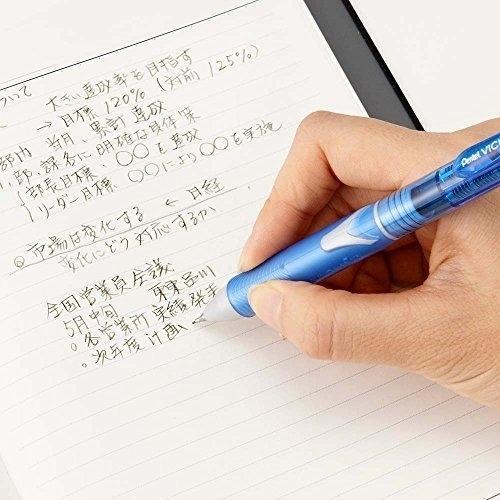 ついて
大きい達成率を目指す
→目標120% (対前125%)
当月、累計達成
部内
部、課名に明確な具体策
部長目標 〇〇を達成
リーダー目標 〇〇により〇〇を実施
◎市場は変化する ← 日経
変化にどう対応するか
全国営業員会議
5月中旬 品川
・各営業所実績発表
・次年度計画
Pentel VICU